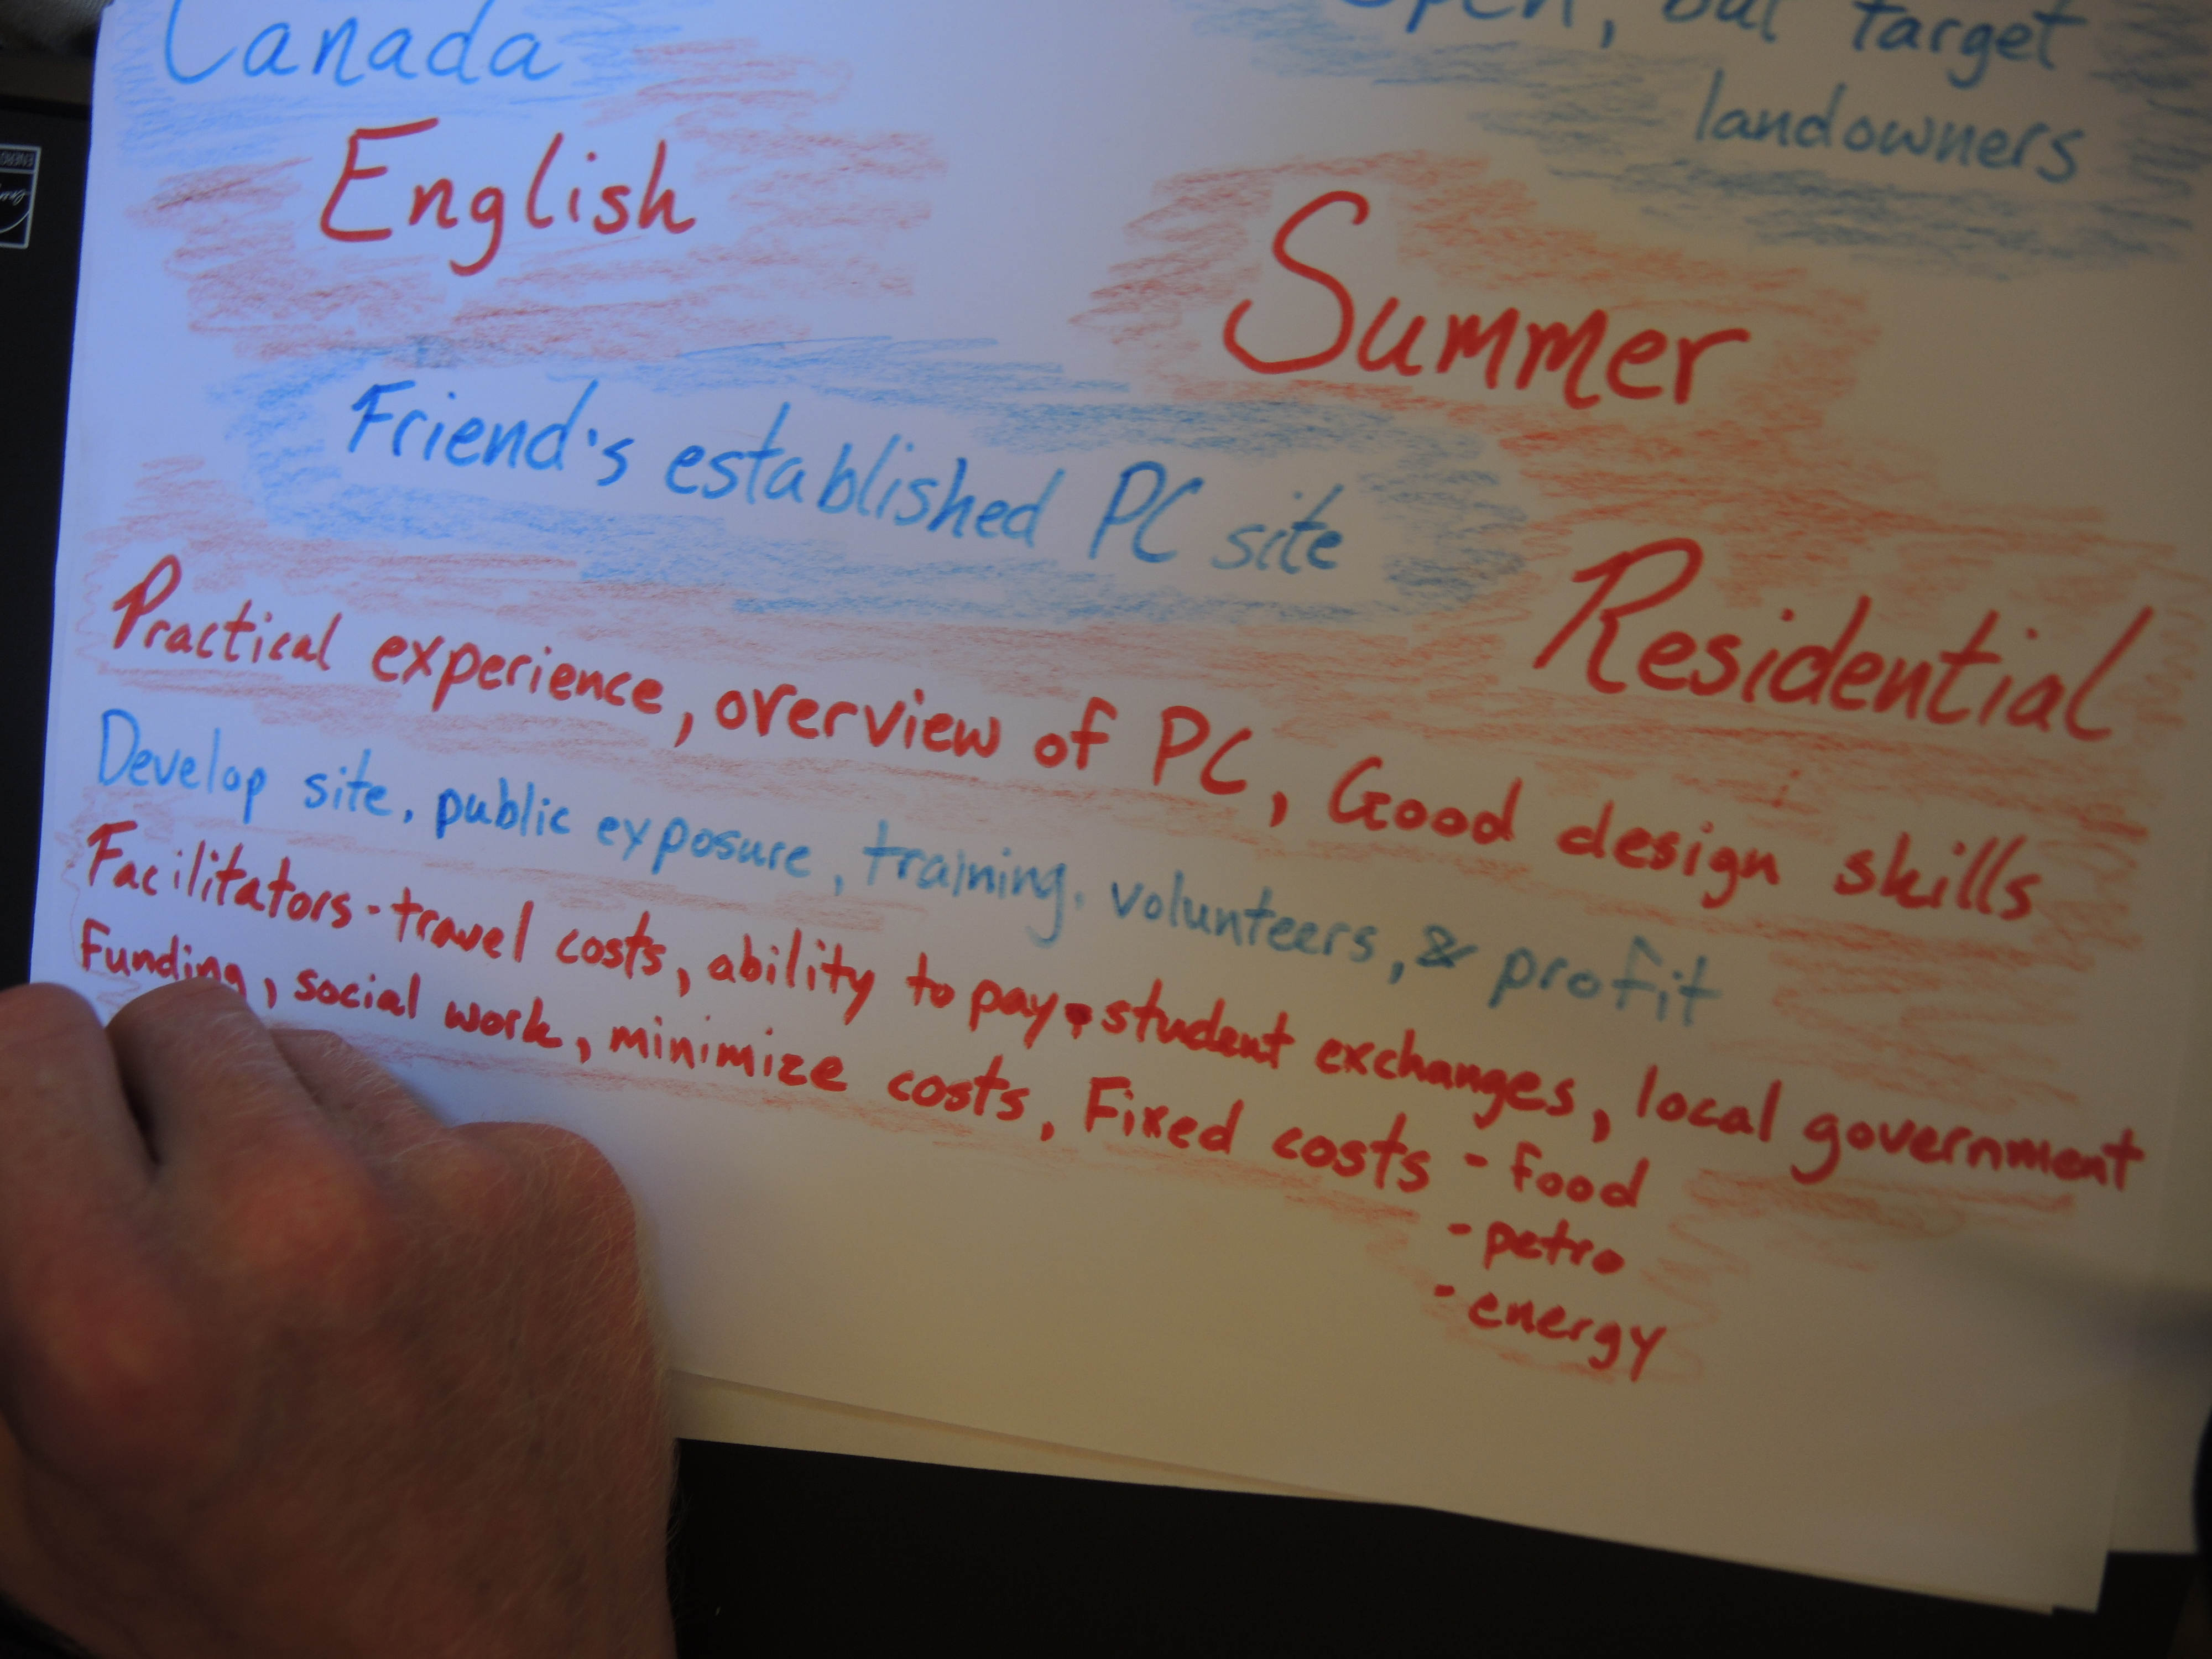 Canada
Open, but target
landowners
English
Summer
Friend's established PC site
Residential
Practical experience, overview of PC, Good design skills
Develop site, public exposure, training, volunteers, & profit
Facilitators - travel costs, ability to pay, student exchanges, local government
Funding, social work, minimize costs, Fixed costs - food
- petro
- energy